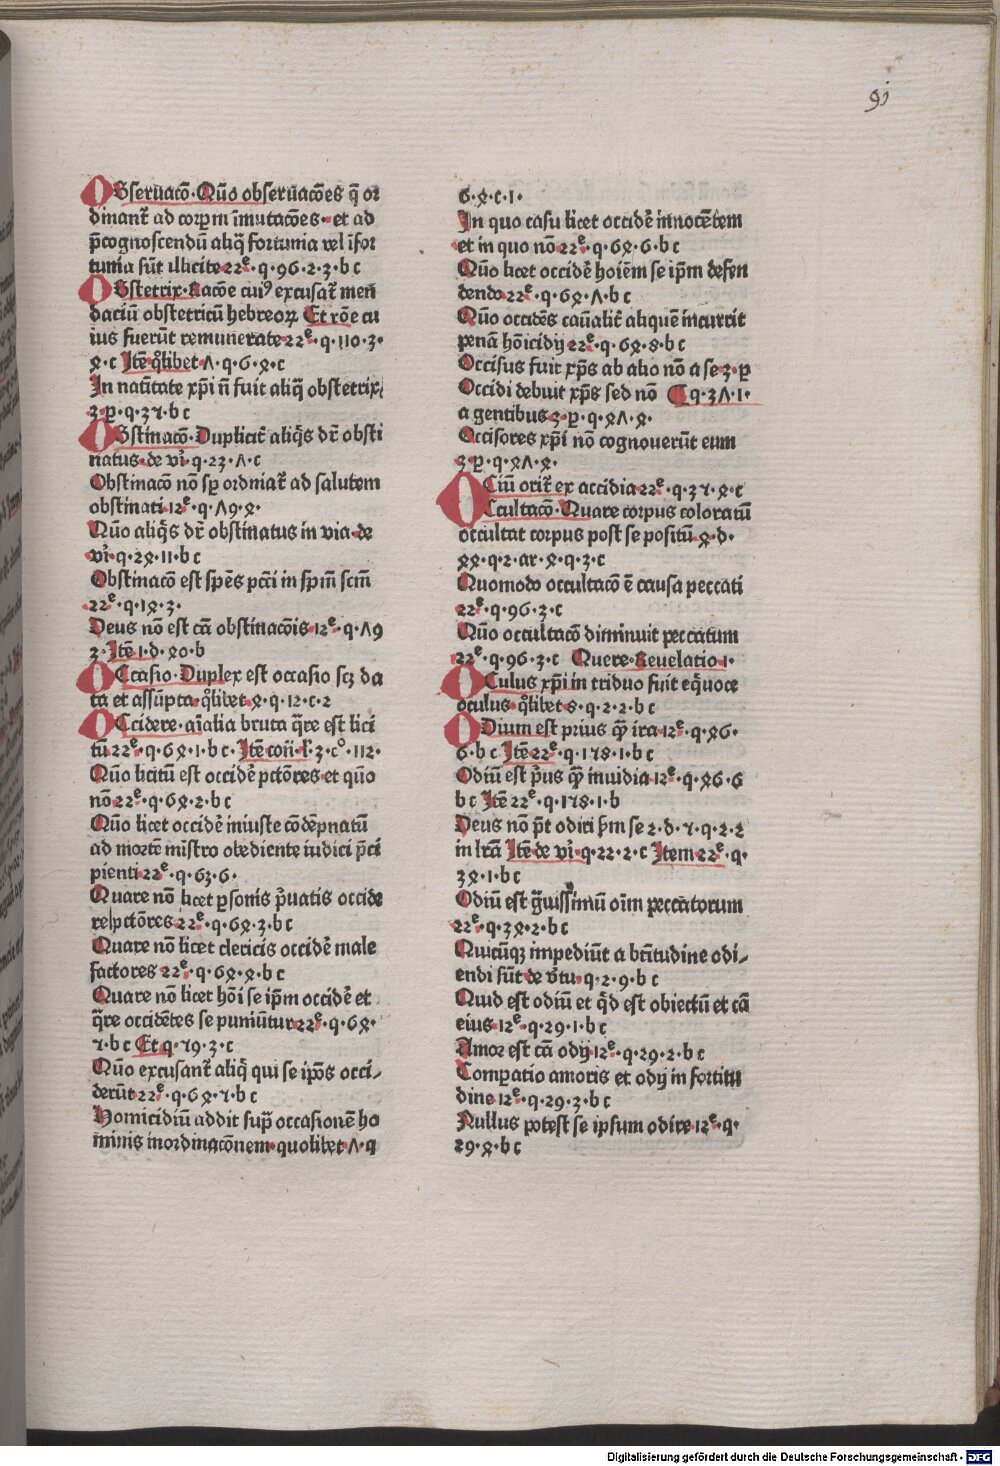 91
OBseruacō·Qūo obseruacōes q̄ or
dinant᷑ ad corp̄m īmutacōes·et ad
p̄cognoscendū aliq̄ fortunia vel īfor
tunia sūt illicite 22ͤ·q·96·2·3·b c
OBstetrix·Racōe cuiꝰ excusat᷑ men
daciū obstetricum hebreoꝝ Et rōe cu
ius fuerūt remunerate 22ͤ·q·110·3·
ꝝ·c Itē q̊libet Ʌꞏqꞏ6ꞏꝝꞏc
In natītate xp̄i n̄ fuit aliq̄ obstetrix
3·p̱·q·3ꝛ·b c
OBstinacō·Duplicit᷑ aliq̄s dr̄ obsti
natus·de vī·q·23·Ʌ·c
Obstinacō nō sp̄ ordniat᷑ ad salutem
obstinati·12ͤ·q·Ʌ9·ꝝ·
Qūo aliq̄s dr̄ obstinatus in via·de
vī·q·2ꝝ·11·b c
Obstinacō est sp̄es pc̄ci in sp̄m̄ scm̄
22ͤ·q·1ꝝ·3·
Deus nō est cā obstinacōis·12ͤ·q·Ʌ9
2·Itē 1·d·ꝝ0·b
OCcasio·Duplex est occasio scꝫ da
ta et assūpta·q̊libet·ꝝ·q·12·c·2
OCcidere·aīalia bruta q̄re est lici
tū 22ͤ·q·6ꝝ·1·b c·Itē cōn̄·l̄·3·cͦ·112·
Qūo licitū est occidē pctōres et qūo
nō 22ͤ·q·6ꝝ·2·b c
Qūo licet occidē iniuste cōdēpnatū
ad mortē mīstro obediente iudici p̄ci
pienti 22ͤ·q·63·6·
Quare nō licet p̱sonis p̄uatis occide
re pctōres 22ͤ·q·6ꝝ·3·b c
Quare nō licet clericis occidē male
factores 22ͤ·q·6ꝝ·ꝝ·b c
Quare nō licet hōi se ip̄m occidē et
q̄re occidētes se puniūtur 22ͤ·q·6ꝝ·
ꝛ·b c Et q·ꝛ9·3·c
Qūo excusant᷑ aliq̄ qui se ip̄os occi-
derūt 22ͤ·q·6ꝝ·ꝛ·b c
Homicidiū addit sup̄ occasionē ho
minis inordinacōnem·quolibet·Ʌ·q
6·ꝝ·c·1·
In quo casu licet occidē innocētem
et in quo nō 22ͤ·q·6ꝝ·6·b c
Qūo licet occidē hoiēm se ip̄m defen
dendo 22ͤ·q·6ꝝ·Ʌ·b c
Qūo occidēs cāualit᷑ aliquē incurrit
penā hōicidij 22ͤ·q·6ꝝ·8·b c
Occisus fuit xp̄s ab alio nō a se 3·p̱
Occidi debuit xp̄s sed nō ¶ q·3Ʌ·1·
a gentibus 3·p̱·q·ꝝɅ·ꝝ·
Occisores xp̄i nō cognouerūt eum
3·p̱·q·ꝝɅ·ꝝ·
OCiū orit᷑ ex accidia 22ͤ·q·3ꝛ·ꝝ·c
OCcultacō·Quare corpus coloratū
occultat corpus post se positū·ꝝ·d·
ꝝꝝ·q·2·ar·ꝝ·q·3·c
Quomodo occultacō ē causa peccati
22ͤ·q·96·3·c
Qūo occultacō diminuit peccatum
22ͤ·q·96·3·c Quere·Reuelatio 1·
OCulus xp̄i in triduo fuit eq̄uoce
oculus·q̊libet·8·q·2·2·b c
ODium est prius q̄ꝫ ira 12ͤ·q·ꝝ6·
6·b c Itē 22ͤ·q·1ɅꝊ·1·b c
Odiū est p̄us q̄ꝫ inuidia·12ͤ·q·ꝝ6·6
b c Itē 22ͤ·q·178·1·b
Deus nō p̄t odiri ẜm se 2·d·ꝛ·q·2·2
in lrā Itē de vī·q·22·2·c Item 22ͤ·q·
3ꝝ·1·b c
Odiū est ḡuissimū oīm peccatorum
22ͤ·q·3ꝝ·2·b c
Quicūqꝫ impediūt a btītudine odi-
endi sūt de v̄tu·q·2·9·b c
Quid est odiū et q̄d est obiectū et cā
eius 12ͤ·q·29·1·b c
Amor est cā odij 12ͤ·q·29·2·b c
Comp̱atio amoris et odij in fortitu
dine 12ͤ·q·29·3·b c
Nullus potest se ipsum odire 12ͤ·q·
29·ꝝ·b c
Digitalisierung gefördert durch die Deutsche Forschungsgemeinschaft · DFG